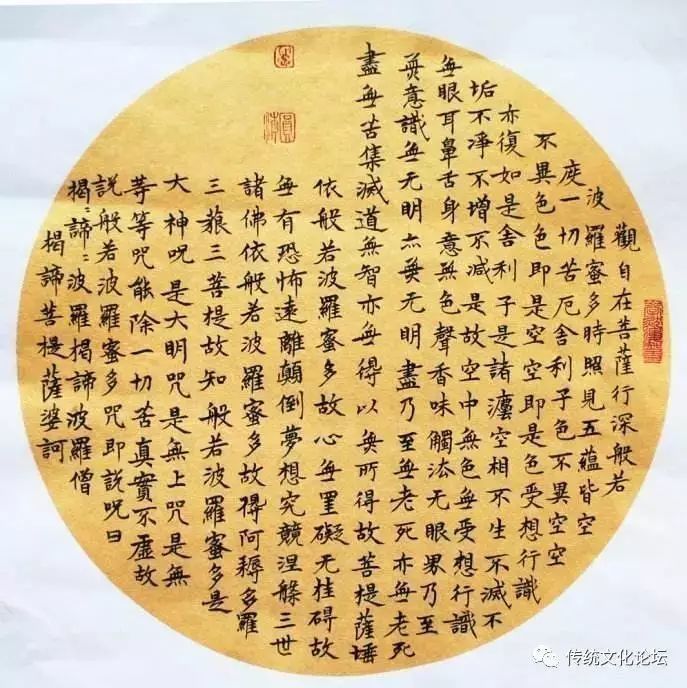 觀自在菩薩行深般若
波羅蜜多時照見五蘊皆空
度一切苦厄舍利子色不異空空
不異色色即是空空即是色受想行識
亦復如是舍利子是諸灋空相不生不滅不
垢不淨不增不減是故空中無色無受想行識
無眼耳鼻舌身意無色聲香味觸法无眼界乃至
無意識無无明亦無无明盡乃至無老死亦無老死
盡無苦集滅道無智亦無得以無所得故菩提薩埵
依般若波羅蜜多故心無罣礙无桂碍故
無有恐怖遠離顛倒夢想究竟涅槃三世
諸佛依般若波羅蜜多故得阿耨多羅
三藐三菩提故知般若波羅蜜多是
大神咒是大明咒是無上咒是無
等等咒能除一切苦真實不虛故
說般若波羅蜜多咒即說咒曰
揭:諦:波羅揭諦波羅僧
揭諦菩提薩婆訶
传统文化论坛